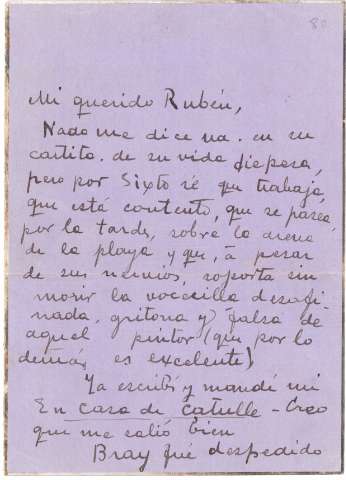 80
Mi querido Rubén,
Nada me dice Vd. en su
cartita de su vida diepesa,
pero por Sixto sé que trabaja
que está contento, que se pasea
por la tarde, sobre la arena
de la playa y que, á pesar
de sus nervios, soporta sin
morir la vocecilla desafi-
nada, gritona y falsa de
aquel pintor (que por lo
demás es excelente)
Ya escribí y mandé mi
En casa de Catulle - Creo
que me salió bien
Bray fué despedido